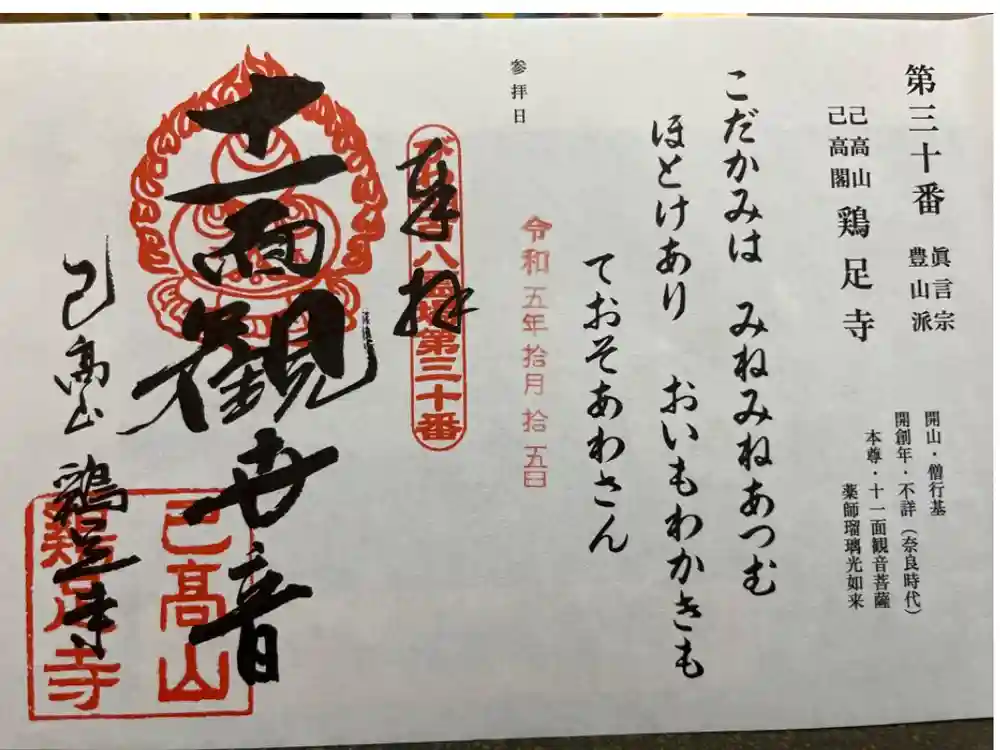 第三十番
眞言宗
豊山派
己高山
己高閣
鶏足寺
開山・僧行基
開創年・不詳（奈良時代）
本尊・十一面観音菩薩
薬師瑠璃光如来
こだかみは みねみねあつむ
ほとけあり おいもわかきも
ておそあわさん
参拝日
令和五年拾月拾五日
奉拝
第三十番
十一面観世音
己高山 鶏足寺
己高山
鶏足寺